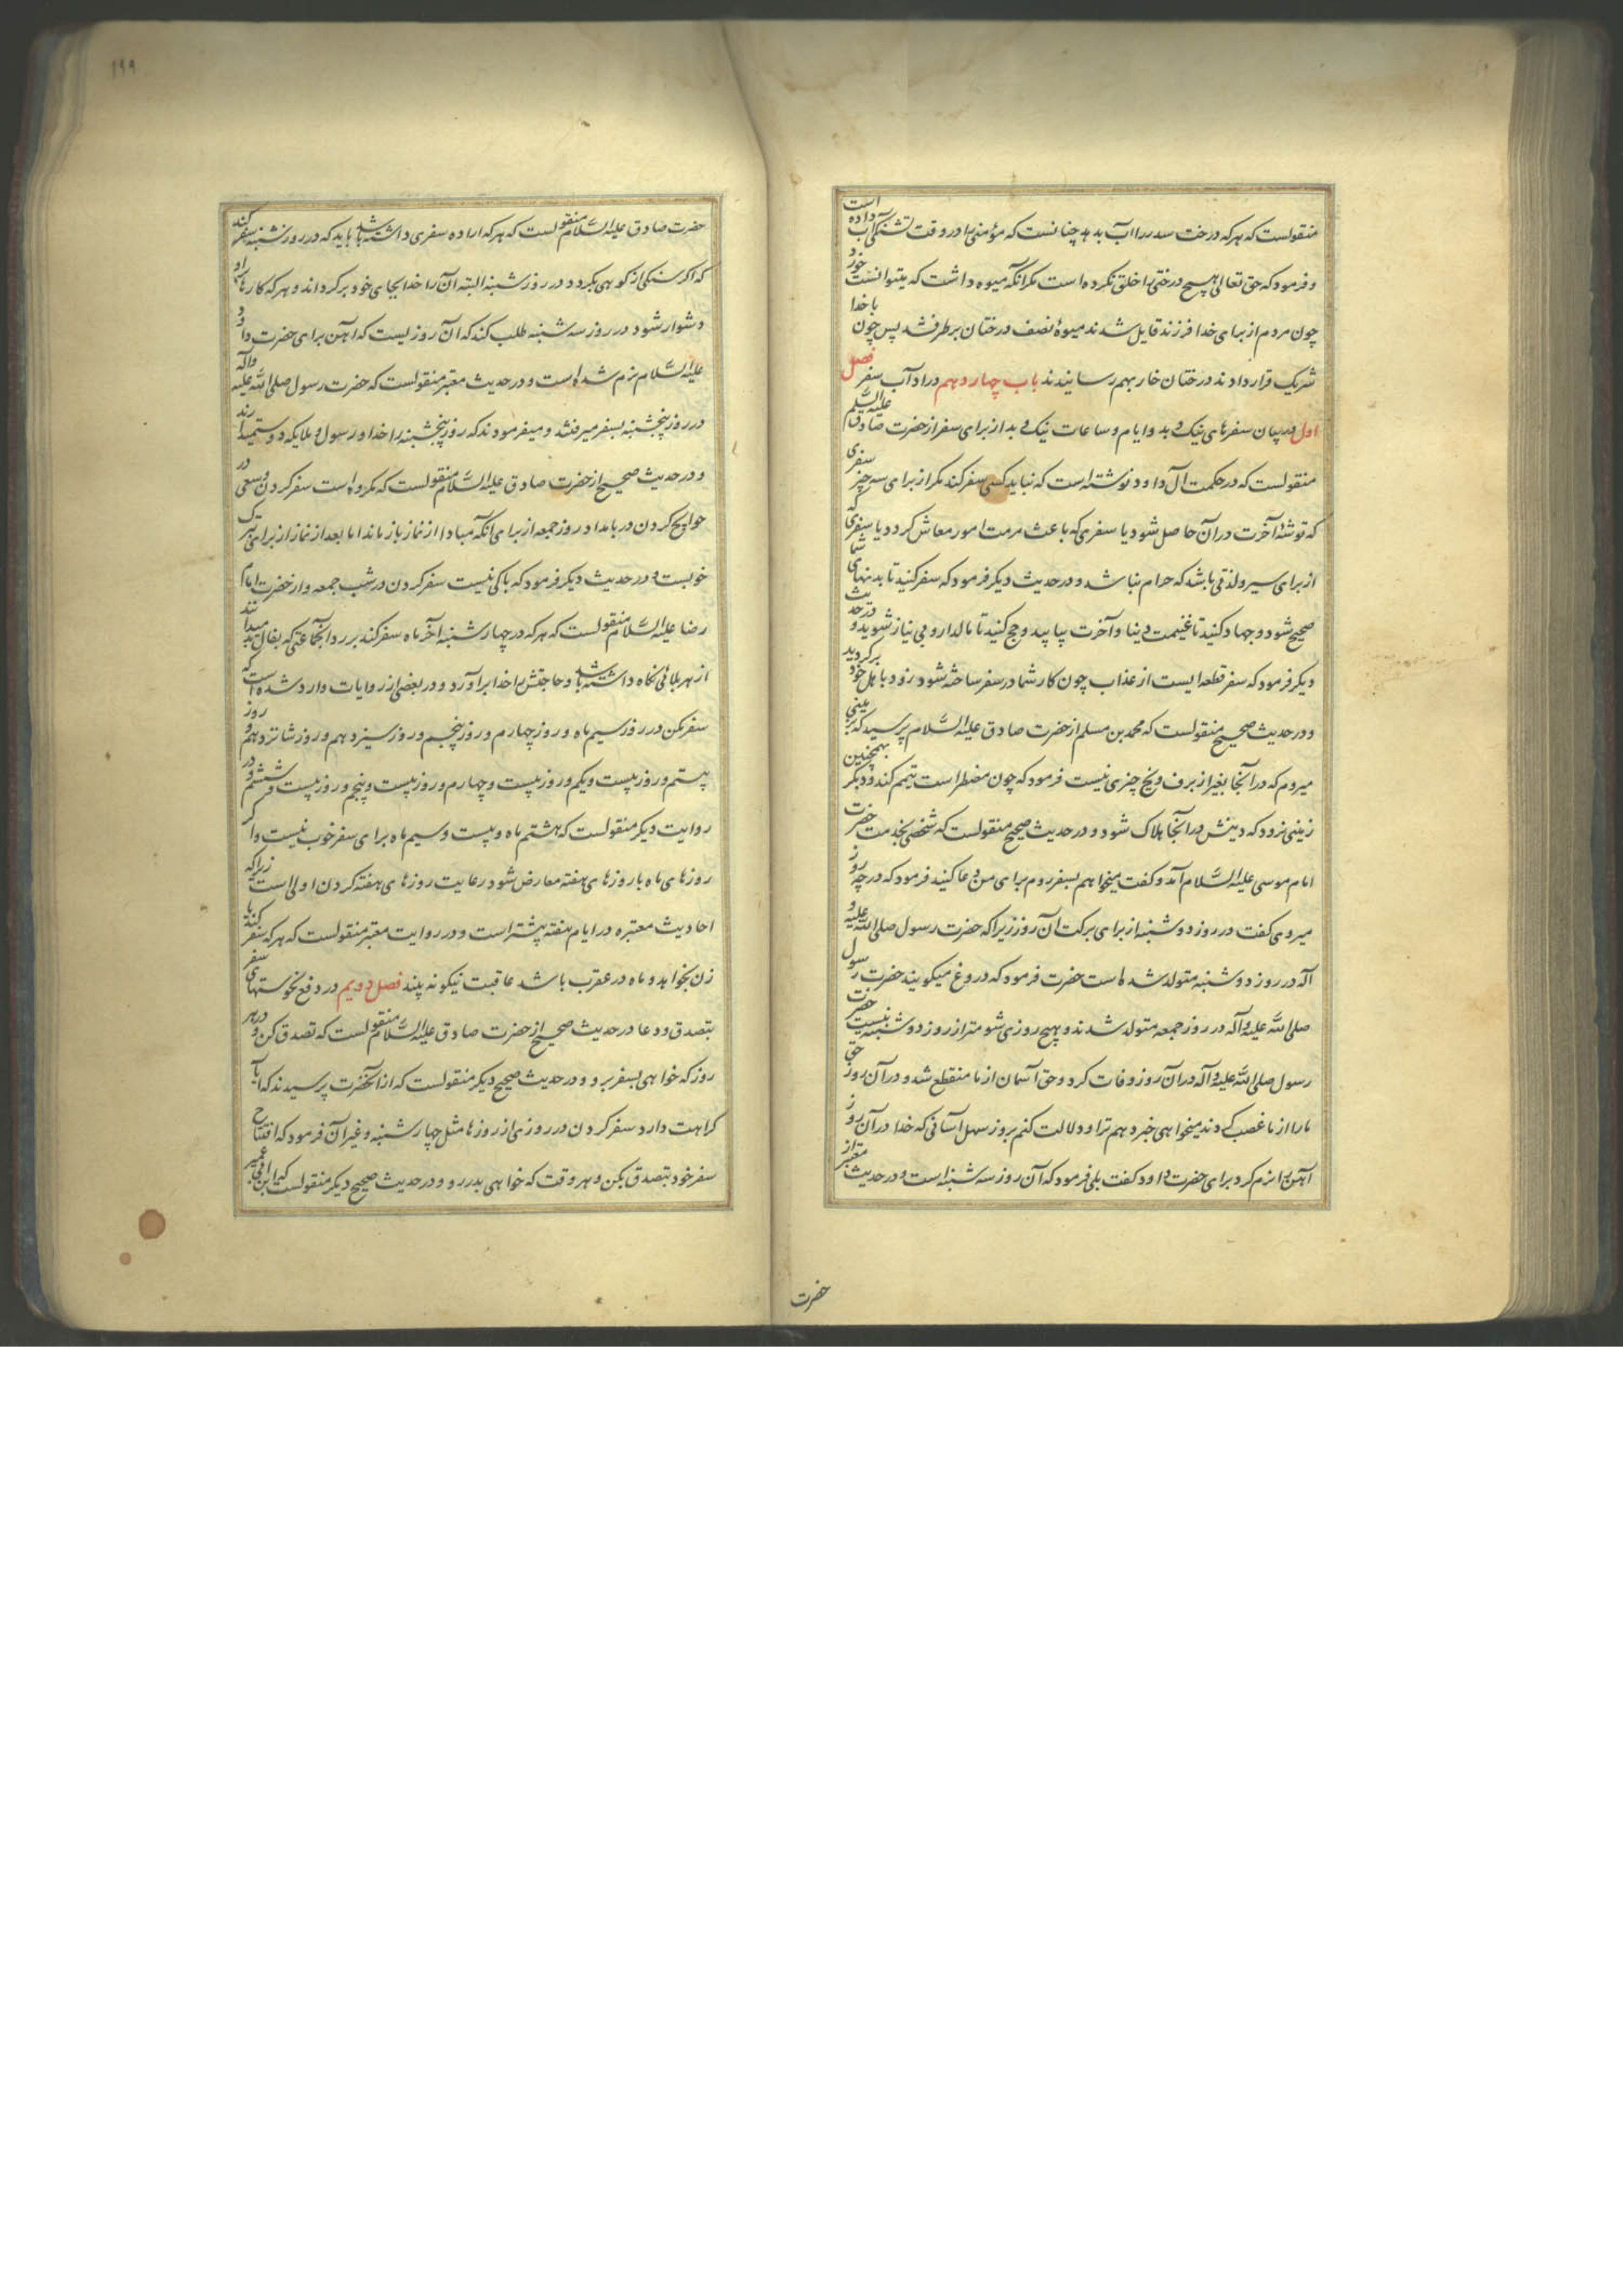 منقولست که هر که درخت سدر را آب بدهد چنانست که مؤمنی را در وقت تشنگی آب داده است
و فرمود که حق تعالی هیچ درختی را خلق نکرده است مگر آنکه میوه داشت که میتوانست خورد
چون مردم از برای خدا فرزند قایل شدند میوهٔ نصف درختان برطرف شد پس چون با خدا
شریک قرار دادند درختان خار بهم رسانیدند باب چهاردهم در آداب سفر فصل
اول در بیان سفرهای نیک و بد و ایام و ساعات نیک و بد از برای سفر از حضرت صادق علیه السلم
منقولست که در حکمت آل داود نوشته است که نباید کسی سفر کند مگر از برای سه چیز سفری
که توشهٔ آخرت در آن حاصل شود یا سفری که باعث مرمت امور معاش گردد یا سفری که
از برای سیر و لذتی باشد که حرام نباشد و در حدیث دیگر فرمود که سفر کنید تا بدنهای شما
صحیح شود و جهاد کنید تا غنیمت دنیا و آخرت بیابید و حج کنید تا مالدار و بی نیاز شوید و در حدیث
دیگر فرمود که سفر قطعه ایست از عذاب چون کار شما در سفر ساخته شود زود باهل خود برگردید
و در حدیث صحیح منقولست که محمد بن مسلم از حضرت صادق علیه السّلام پرسید که بر مینی
میروم که در آنجا بغیر از برف و یخ چیزی نیست فرمود که چون مضطر است تیمم کند و دیگر بهمچنین
زمینی نرود که دینش در آنجا هلاک شود و در حدیث صحیح منقولست که شخصی بخدمت حضرت
امام موسی علیه السّلام آمد و گفت میخواهم بسفر روم برای من دعا کنید فرمود که در چه روز
میروی گفت در روز دوشنبه از برای برکت آن روز زیرا که حضرت رسول صلی الله علیه و
آله در روز دوشنبه متولد شده است حضرت فرمود که دروغ میگویند حضرت رسول
صلی الله علیه و آله در روز جمعه متولد شدند و هیچ روزی شومتر از روز دوشنبه نیست حضرت
رسول صلی الله علیه و آله در آن روز وفات کرد و حق آسمان از ما منقطع شد و در آن روز حق
ما را از ما غصب کردند میخواهی خبر دهم ترا و دلالت کنم بروز سهل آسانی که خدا در آن روز
آهن را نرم کرد برای حضرت داود گفت بلی فرمود که آن روز سه شنبه است و در حدیث معتبر از
حضرت
١٩٩
حضرت صادق علیه السّلام منقولست که هر که اراده سفری داشته باشد باید که در روز شنبه سفر کند
که اگر سنگی از کوهی بگردد در روز شنبه البته آن را خدا بجای خود برگرداند و هر که کارها بر او
دشوار شود در روز سه شنبه طلب کند که آن روزیست که آهن برای حضرت داود
علیه السّلام نرم شده است و در حدیث معتبر منقولست که حضرت رسول صلی الله علیه و آله
در روز پنجشنبه بسفر میرفتند و میفرمودند که روز پنجشنبه را خدا و رسول و ملایکه دوست میدارند
و در حدیث صحیح از حضرت صادق علیه السّلام منقولست که مکروه است سفر کردن و سعی در
حوایج کردن در بامداد روز جمعه از برای آنکه مبادا از نماز باز ماند اما بعد از نماز از برای تبرک
خوبست و در حدیث دیگر فرمود که باکی نیست سفر کردن در شب جمعه و از حضرت امام
رضا علیه السّلام منقولست که هر که در چهارشنبه آخر ماه سفر کند برد آنجماعتی که بفال بد میدانند
از هر بلائی نگاه داشته باشد و حاجتش را خدا برآورد و در بعضی از روایات وارد شده است که
سفر مکن در روز سیم ماه و روز چهارم و روز پنجم و روز سیزدهم و روز شانزدهم و روز
بیستم و روز بیست و یکم و روز بیست و چهارم و روز بیست و پنجم و روز بیست و ششم و در
روایت دیگر منقولست که هشتم ماه و بیست و سیم ماه برای سفر خوب نیست و اگر
روزهای ماه با روزهای هفته معارض شود رعایت روزهای هفته کردن اولی است زیرا که
احادیث معتبره در ایام هفته بیشتر است و در روایت معتبر منقولست که هر که سفر کند یا
زن بخواهد و ماه در عقرب باشد عاقبت نیکو نه بیند فصل دویم در دفع نحوستهای سفر
بتصدق و دعا در حدیث صحیح از حضرت صادق علیه السّلام منقولست که تصدق کن و در هر
روز که خواهی بسفر برو و در حدیث صحیح دیگر منقولست که از آنحضرت پرسیدند که آیا
کراهت دارد سفر کردن در روزی از روزها مثل چهارشنبه و غیر آن فرمود که افتتاح
سفر خود بتصدق بکن و هر وقت که خواهی بدر رو و در حدیث صحیح دیگر منقولست که ابن ابی عمیر